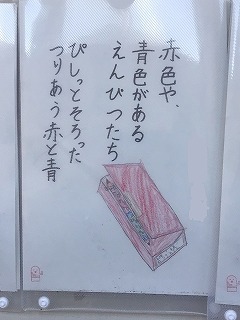 赤色や、
青色がある
えんぴつたち
ぴしっとそろった
つりあう赤と青